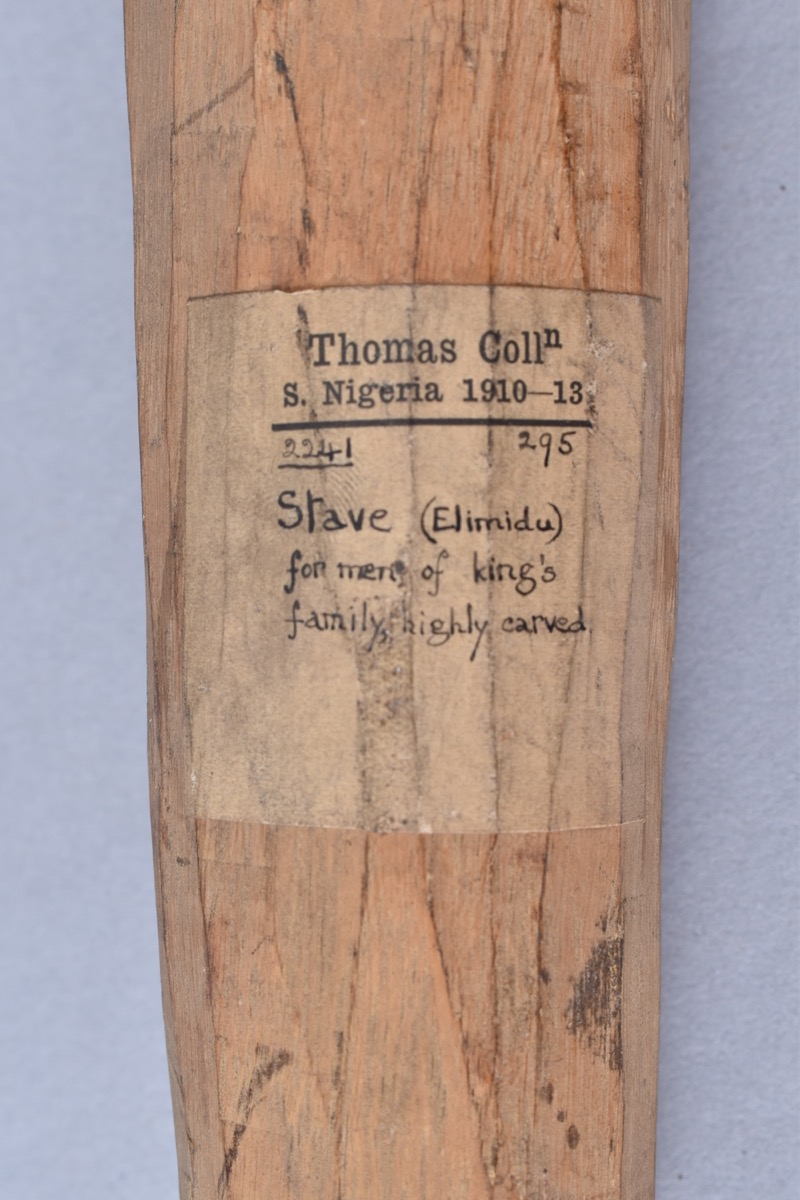 Thomas Collⁿ
S. Nigeria 1910—13
2241 295
Stave (Elimidu)
for men of king's
family, highly carved.